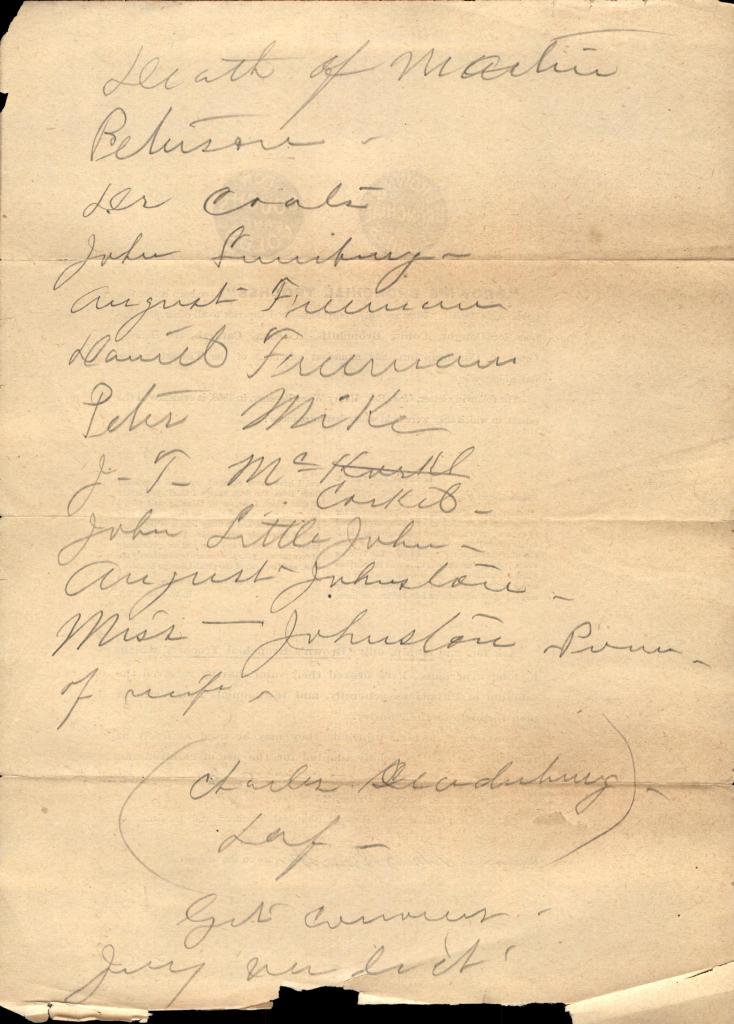 Death of Martin
Peterson -
Dr Coats
John Sunsburg -
August Freeman
Daniel Freeman
Peter Mike
J - T - Mc Karkl
Corkel -
John Little John -
August Johnston -
Miss — Johnston
of wife -
(Charles) -
Def -
Get
Jury verdict